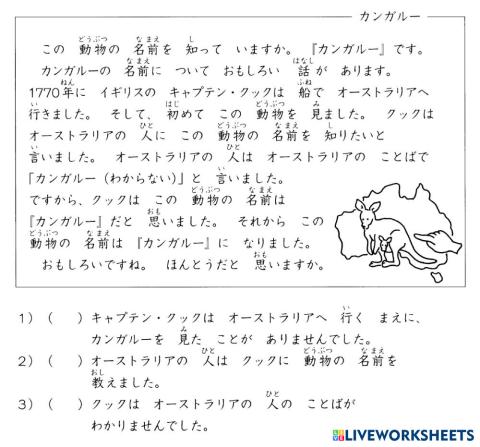 カンガルー
この 動物の 名前を 知って いますか。 『カンガルー』です。
カンガルーの 名前に ついて おもしろい 話が あります。
1770年に イギリスの キャプテン・クックは 船で オーストラリアへ
行きました。 そして、 初めて この 動物を 見ました。 クックは
オーストラリアの 人に この 動物の 名前を 知りたいと
言いました。 オーストラリアの 人は オーストラリアの ことばで
「カンガルー（わからない）」と 言いました。
ですから、クックは この 動物の 名前は
『カンガルー』だと 思いました。 それから この
動物の 名前は 『カンガルー』に なりました。
おもしろいですね。 ほんとうだと 思いますか。
1）（　　）キャプテン・クックは オーストラリアへ 行く まえに、
カンガルーを 見た ことが ありませんでした。
2）（　　）オーストラリアの 人は クックに 動物の 名前を
教えました。
3）（　　）クックは オーストラリアの 人の ことばが
わかりませんでした。
LIVEWORKSHEETS